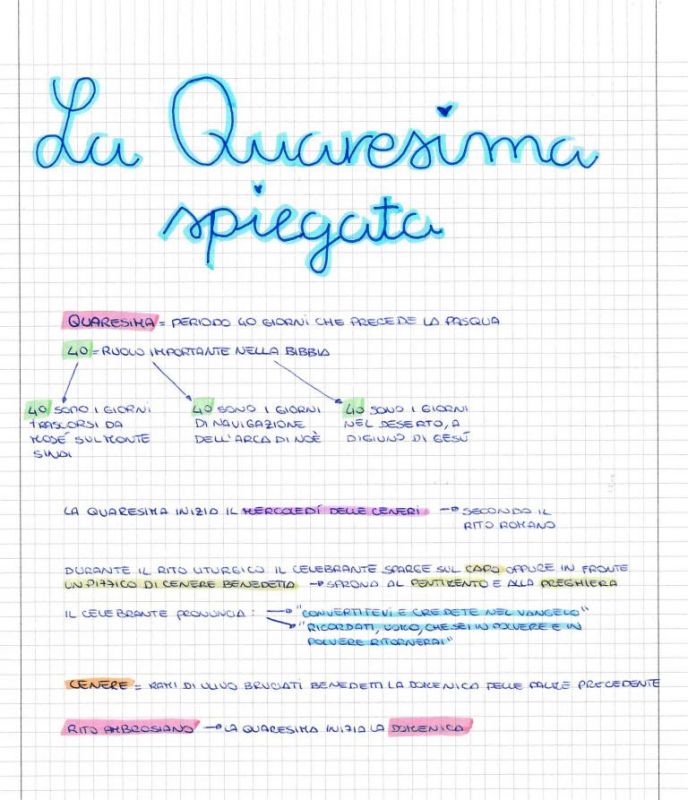 La Quaresima
spiegata
QUARESIMA = PERIODO 40 GIORNI CHE PRECEDE LA PASQUA
40 = RUOLO IMPORTANTE NELLA BIBBIA
40 SONO I GIORNI
TRASCORSI DA
MOSÉ SUL MONTE
SINAI
40 SONO I GIORNI
DI NAVIGAZIONE
DELL'ARCA DI NOÈ
40 SONO I GIORNI
NEL DESERTO, A
DIGIUNO DI GESÚ
LA QUARESIMA INIZIA IL MERCOLEDÍ DELLE CENERI → SECONDO IL
RITO ROMANO
DURANTE IL RITO LITURGICO IL CELEBRANTE SPARGE SUL CAPO OPPURE IN FRONTE
UN PIZZICO DI CENERE BENEDETTA → SPRONA AL PENTIMENTO E ALLA PREGHIERA
IL CELEBRANTE PRONUNCIA: → "CONVERTITEVI E CREDETE NEL VANGELO"
→ "RICORDATI, UOMO, CHE SEI IN POLVERE E IN
POLVERE RITORNERAI"
CENERE = RAMI DI ULIVO BRUCIATI BENEDETTI LA DOMENICA DELLE PALME PRECEDENTE
RITO AMBROSIANO → LA QUARESIMA INIZIA LA DOMENICA